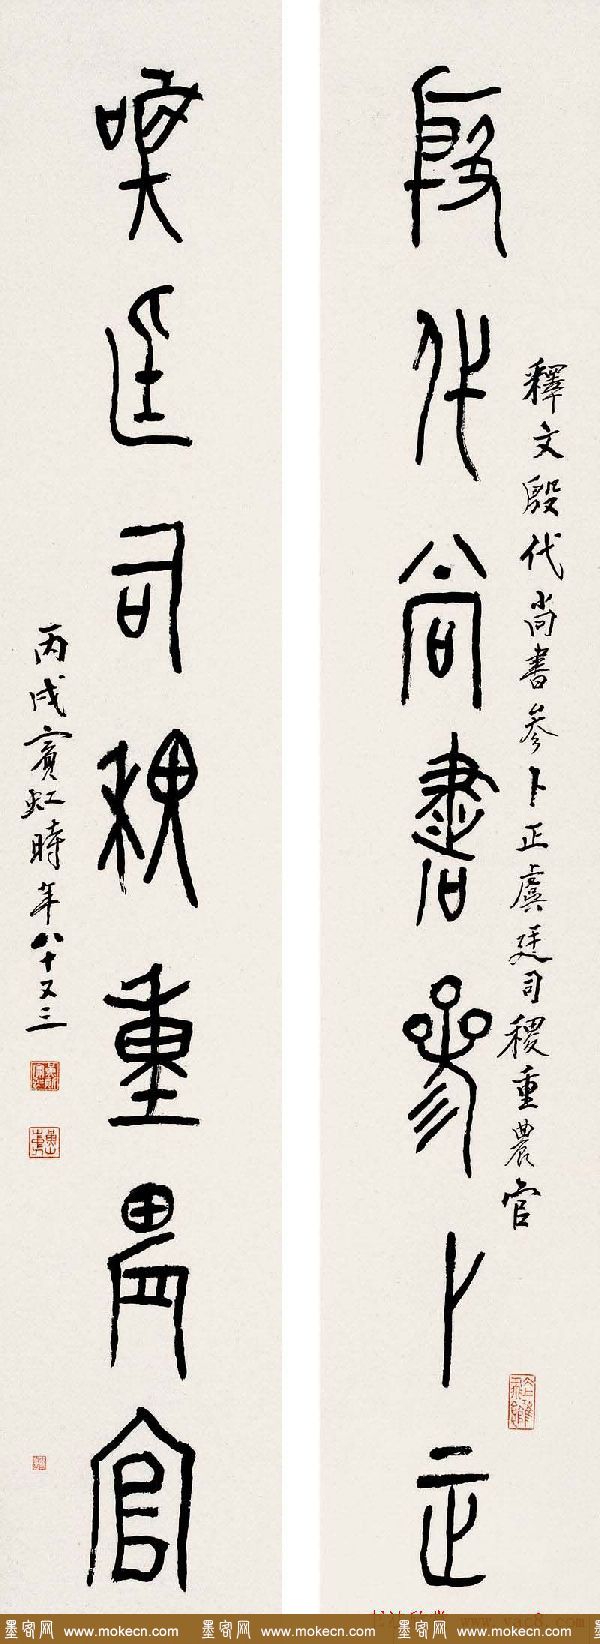 殷代尚書參卜正
釋文殷代尚書參卜正虞廷司稷重農官
虞廷司稷重農官
丙戌賓虹時年八十又三
墨客网 www.mokecn.com 墨客网 www.mokecn.com 墨客网 www.mokecn.com